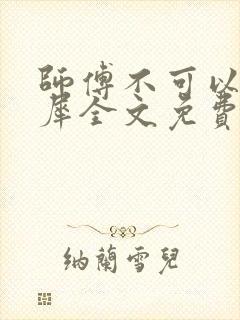 師傅不可以
犀全文免費
纳蘭雪兒